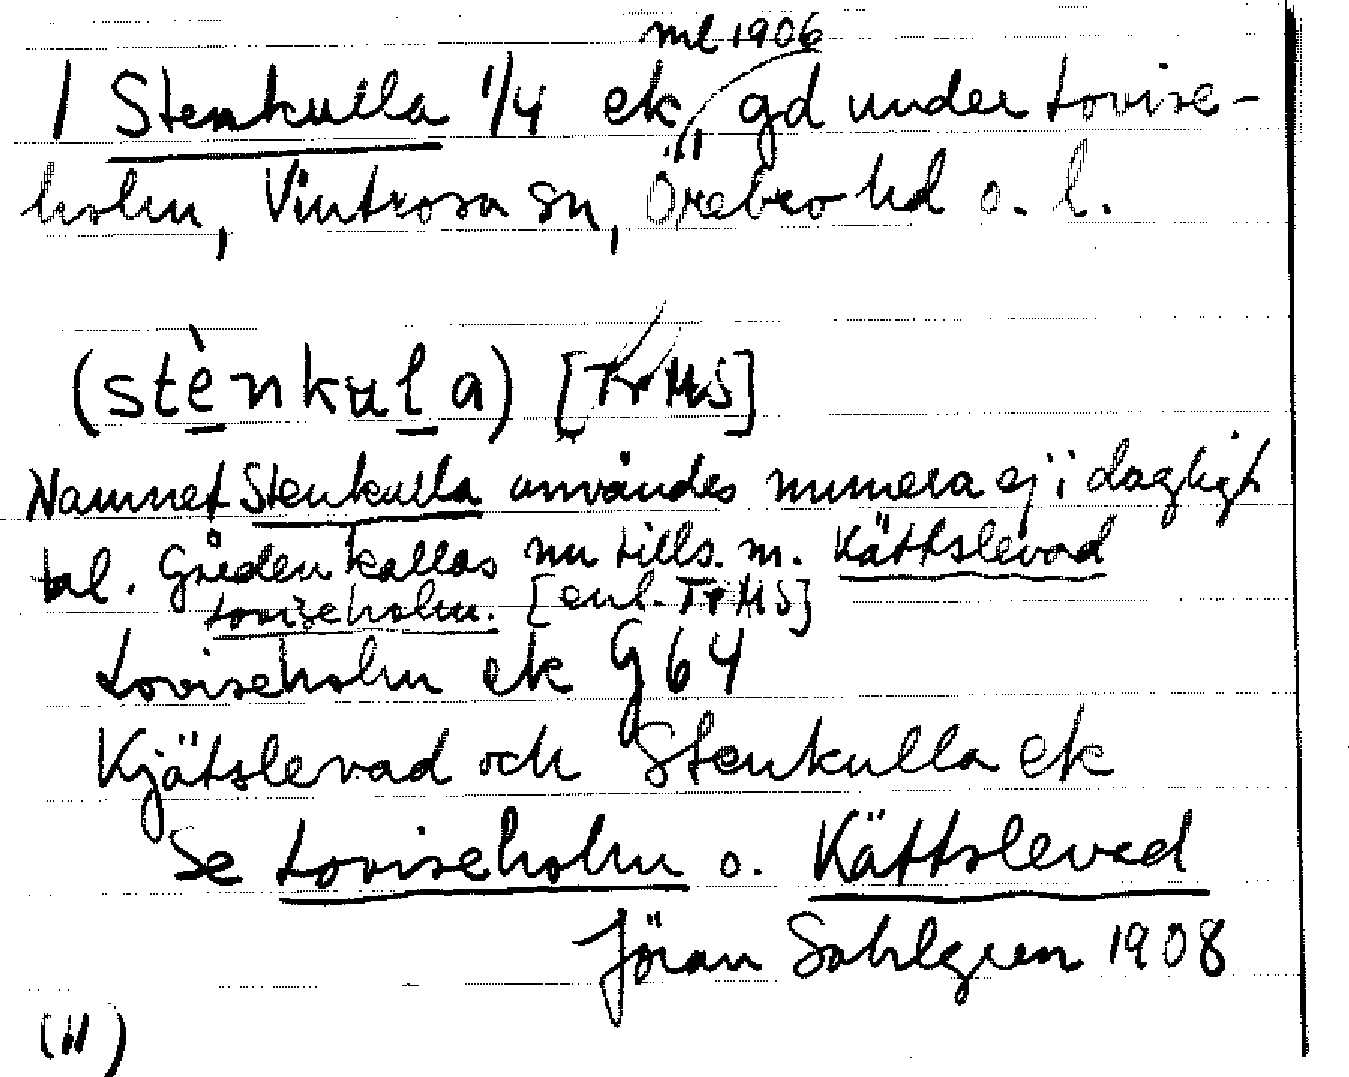 ml 1906
1 Stenkulla 1/4 ek, gd under Lovise-
holm, Vintrosa sn, Örebro hd o. l.
(stènkula) [Tr MS]
Namnet Stenkulla användes numera ej i dagligt
tal. Gården kallas nu tills. m. Kättslevad
Loviseholm. [enl. Tr MS]
Loviseholm ek G 64
Kjätslevad och Stenkulla ek
Se Loviseholm o. Kättslevad
Jöran Sahlgren 1908
(11)